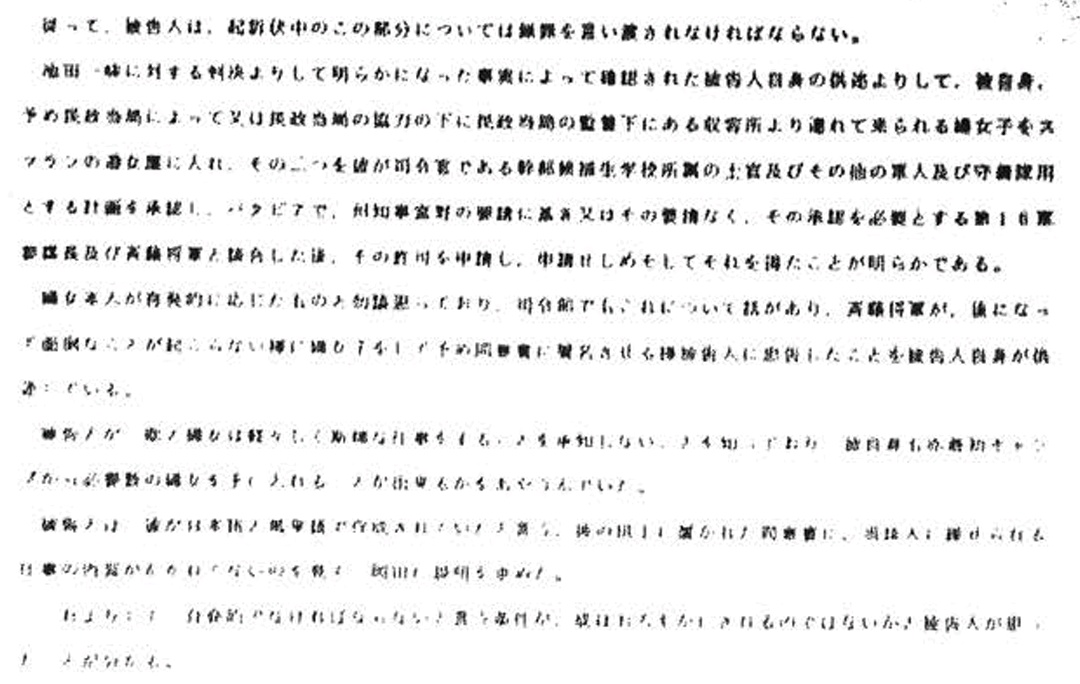 従って、被告人は、起訴状中のこの部分については無罪を言い渡されなければならない。
池田一味に対する判決よりして明らかになった事実によって確認された被告人自身の供述よりして、被告自身、
予め民政当局によって又は民政当局の協力の下に民政当局の監督下にある収容所より連れて来られる婦女子をス
マランの遊女屋に入れ、その二つを彼が司令官である幹部候補生学校所属の士官及びその他の軍人及び守備隊用
とする計画を承認し、バタビアで、州知事宮野の要請に基き又はその要請なく、その承認を必要とする第16軍
参謀長及び斉藤将軍と協合した後、その許可を申請し、申請せしめそしてそれを得たことが明らかである。
婦女本人が自発的に応じたものと勿論思っており、司令部でもこれについて話があり、斉藤将軍が、後になっ
て面倒なことが起こらない様に婦女子をして予め同意書に署名させる様被告人に忠告したことを被告人自身が供
述している。
被告人が 欧人婦女は軽々しく斯様な仕事をすることを承知しないことを知っており 彼自身も亦最初キャン
プから必要数の婦女を手に入れることが出来るかをあやうんでいた。
被告人は 彼が日本語と馬来語で作成されていたと言う、彼の机上に置かれた同意書に、当該人に課せられる
仕事の内容がもられてないのを見て 岡田に説明を求めた。
自発的でなければならないと言う条件が、或はおろそかにされるのではないかと被告人が思っ
たことが分かる。